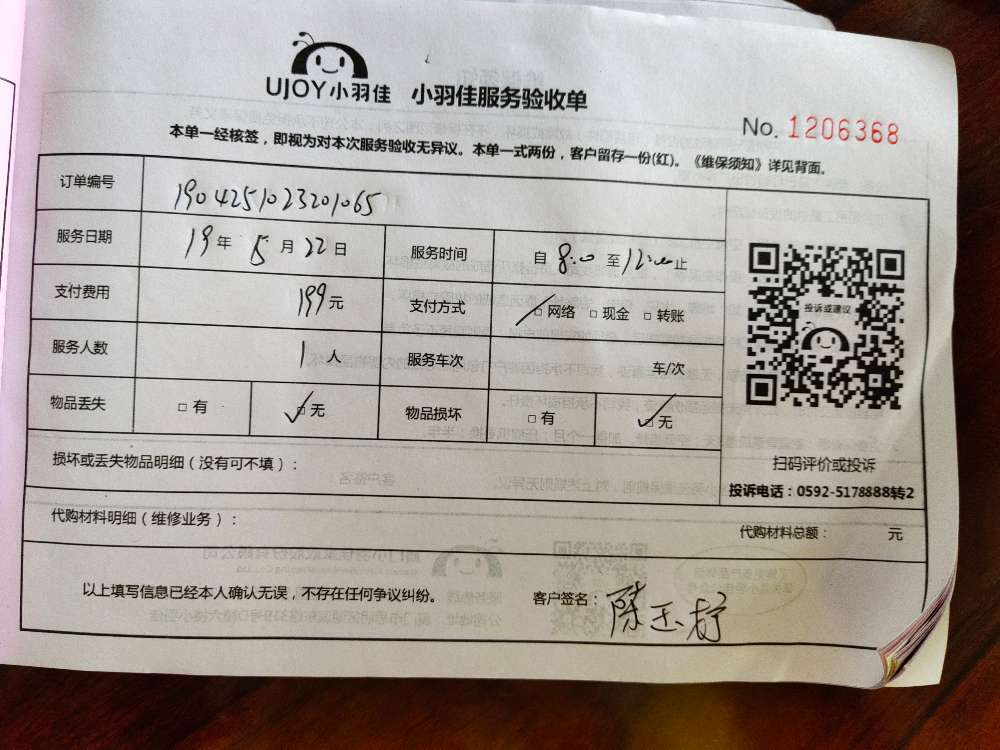 UJOY小羽佳 小羽佳服务验收单
No. 1206368
本单一经核签，即视为对本次服务验收无异议。本单一式两份，客户留存一份(红)。《维保须知》详见背面。
订单编号 1904251023201065
服务日期 19年 5月 22日 服务时间 自 8:00 至 12:00 止
支付费用 199元 支付方式 □ 网络 □ 现金 □ 转账
服务人数 1人 服务车次 车/次
物品丢失 □ 有 ✓□ 无 物品损坏 □ 有 ✓□ 无
投诉或建议
扫码评价或投诉
投诉电话：0592-5178888转2
损坏或丢失物品明细（没有可不填）：
代购材料明细（维修业务）： 代购材料总额： 元
以上填写信息已经本人确认无误，不存在任何争议纠纷。 客户签名：陈玉